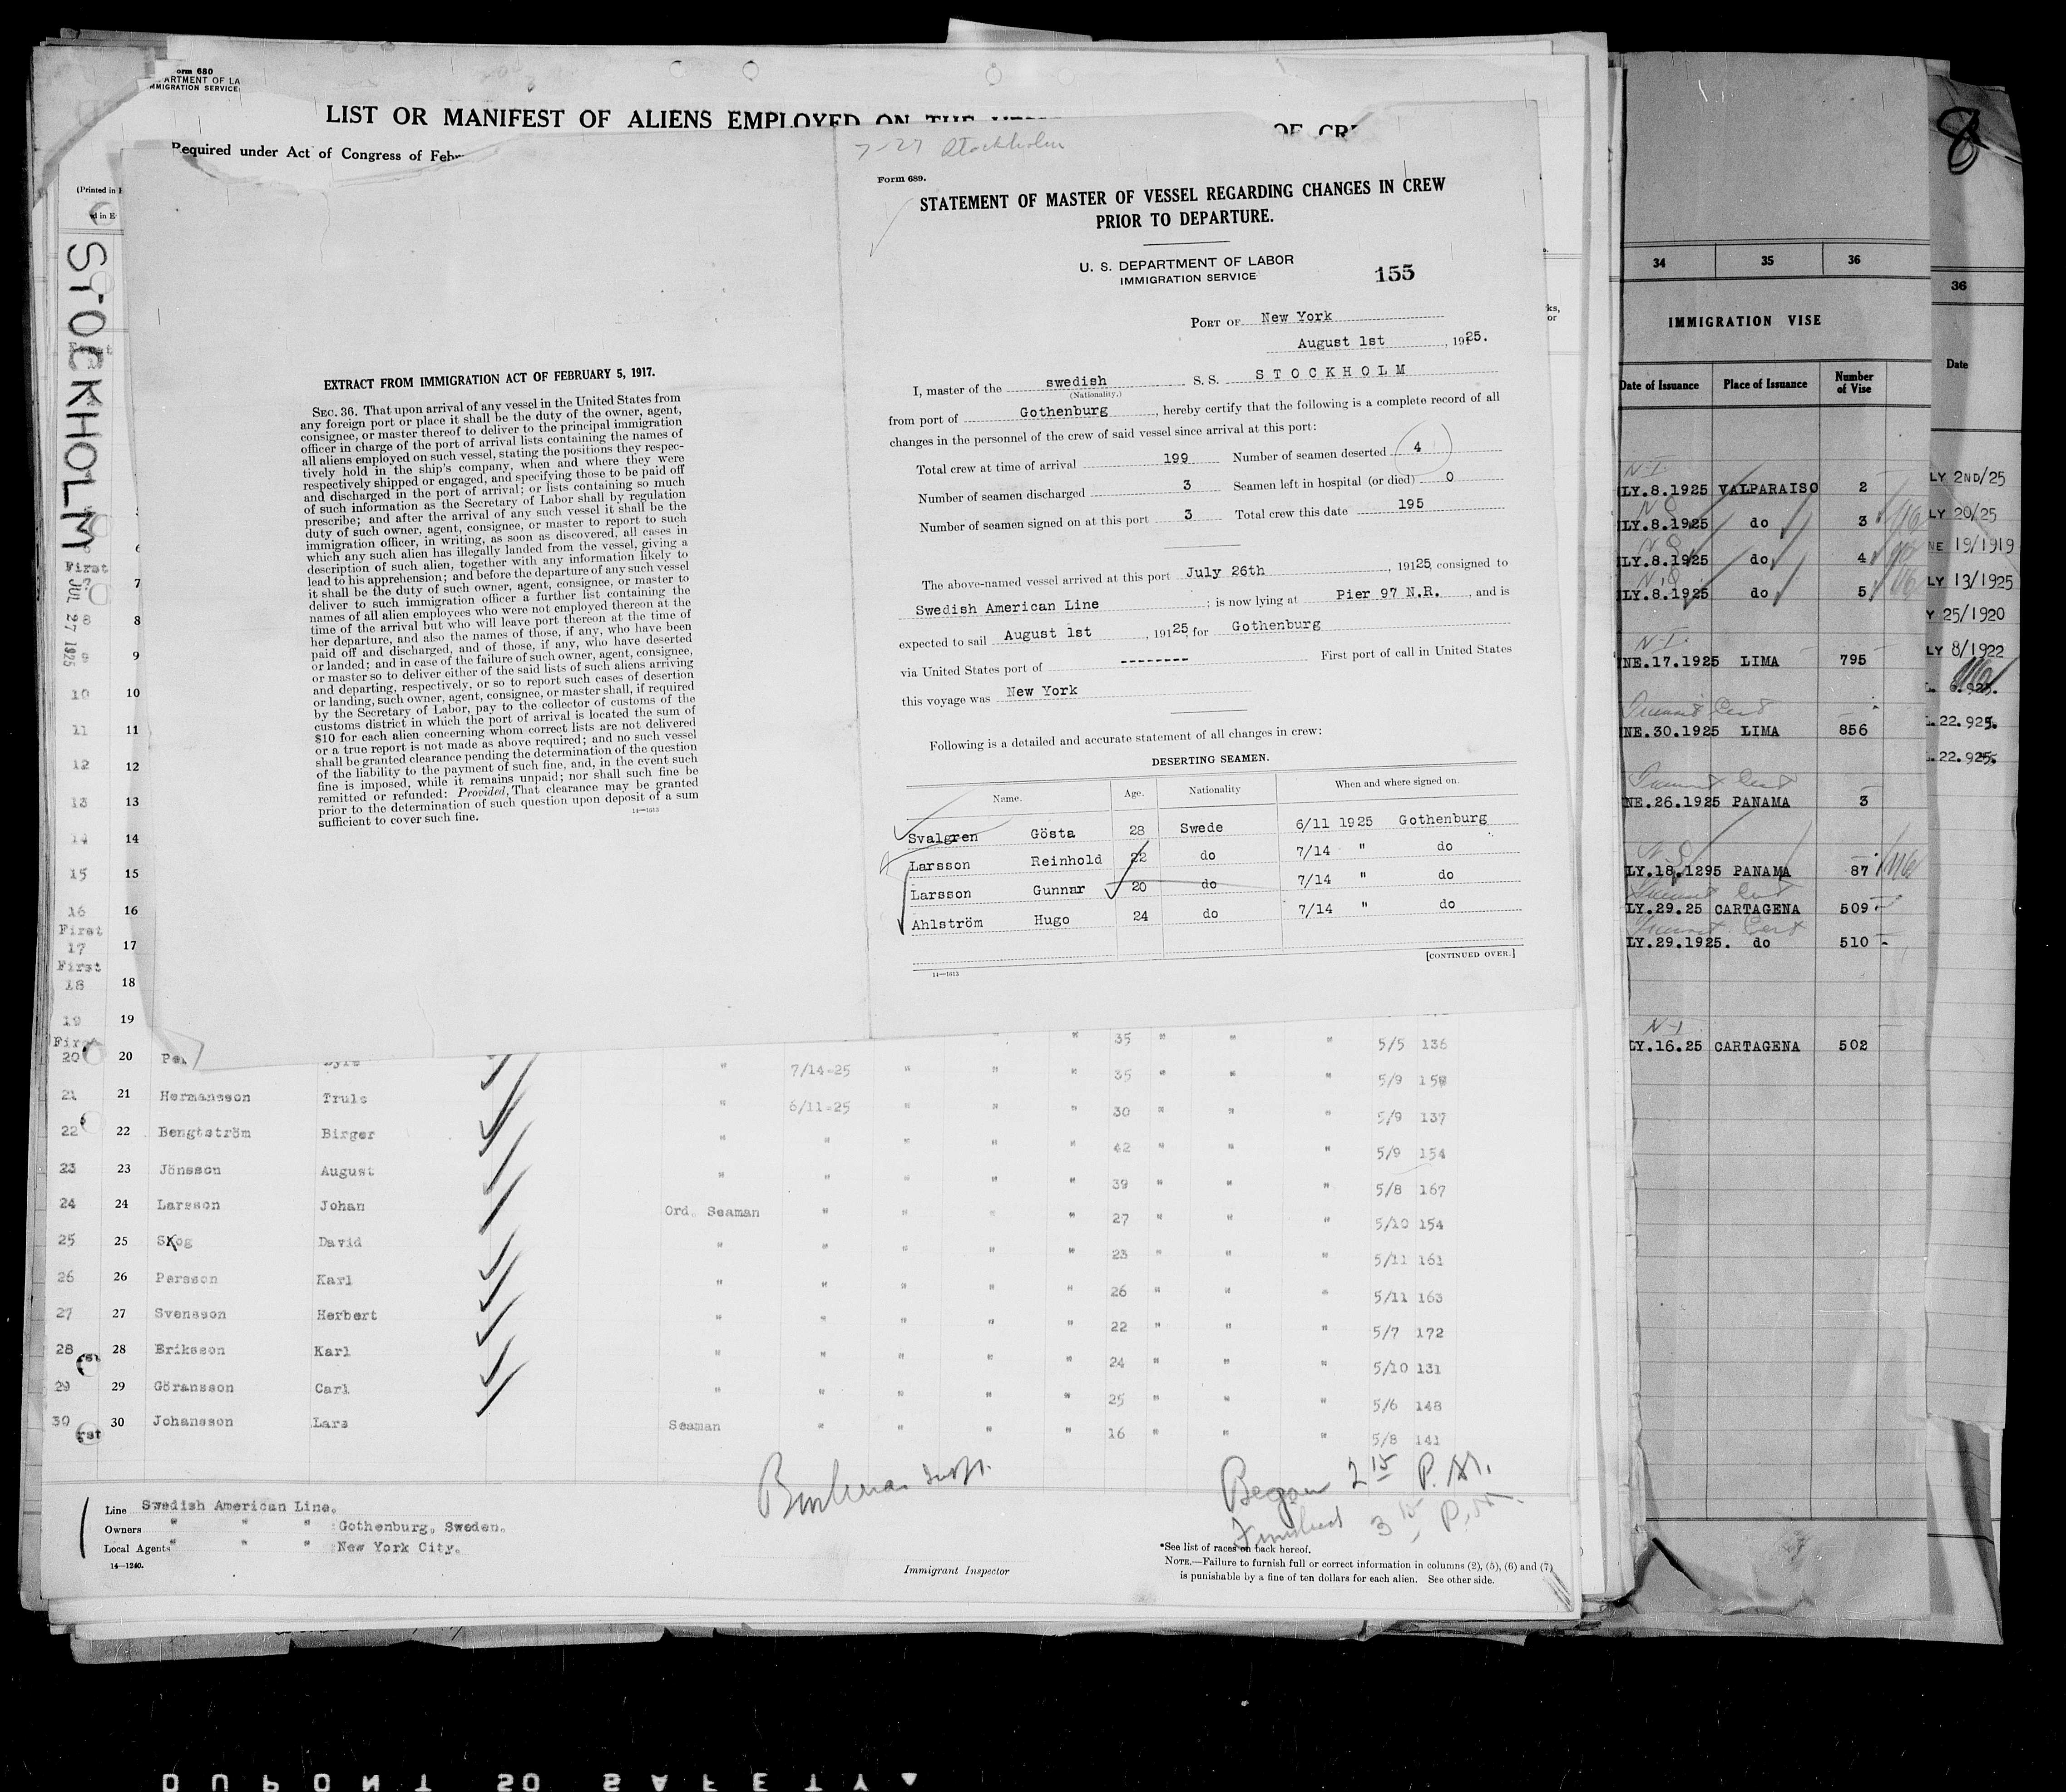 orm 680
ARTMENT OF LA
MMIGRATION SERVICE
LIST OR MANIFEST OF ALIENS EMPLOYED ON THE
OF CR
Required under Act of Congress of Febr
(Printed in
d in E
STOCKHOLM
JUL 27 1925
EXTRACT FROM IMMIGRATION ACT OF FEBRUARY 5, 1917.
SEC. 36. That upon arrival of any vessel in the United States from
any foreign port or place it shall be the duty of the owner, agent,
consignee, or master thereof to deliver to the principal immigration
officer in charge of the port of arrival lists containing the names of
all aliens employed on such vessel, stating the positions they respec-
tively hold in the ship's company, when and where they were
respectively shipped or engaged, and specifying those to be paid off
and discharged in the port of arrival; or lists containing so much
of such information as the Secretary of Labor shall by regulation
prescribe; and after the arrival of any such vessel it shall be the
duty of such owner, agent, consignee, or master to report to such
immigration officer, in writing, as soon as discovered, all cases in
which any such alien has illegally landed from the vessel, giving a
description of such alien, together with any information likely to
lead to his apprehension; and before the departure of any such vessel
it shall be the duty of such owner, agent, consignee, or master to
deliver to such immigration officer a further list containing the
names of all alien employees who were not employed thereon at the
time of the arrival but who will leave port thereon at the time of
her departure, and also the names of those, if any, who have been
paid off and discharged, and of those, if any, who have deserted
or landed; and in case of the failure of such owner, agent, consignee,
or master so to deliver either of the said lists of such aliens arriving
and departing, respectively, or so to report such cases of desertion
or landing, such owner, agent, consignee, or master shall, if required
by the Secretary of Labor, pay to the collector of customs of the
customs district in which the port of arrival is located the sum of
$10 for each alien concerning whom correct lists are not delivered
or a true report is not made as above required; and no such vessel
shall be granted clearance pending the determination of the question
of the liability to the payment of such fine, and, in the event such
fine is imposed, while it remains unpaid; nor shall such fine be
remitted or refunded: Provided, That clearance may be granted
prior to the determination of such question upon deposit of a sum
sufficient to cover such fine.
14—1613
7-27 Stockholm
Form 689.
STATEMENT OF MASTER OF VESSEL REGARDING CHANGES IN CREW
PRIOR TO DEPARTURE.
U. S. DEPARTMENT OF LABOR
IMMIGRATION SERVICE
155
PORT OF New York
August 1st, 1925.
I, master of the swedish S. S. STOCKHOLM
(Nationality.)
from port of Gothenburg, hereby certify that the following is a complete record of all
changes in the personnel of the crew of said vessel since arrival at this port:
Total crew at time of arrival 199 Number of seamen deserted 4
Number of seamen discharged 3 Seamen left in hospital (or died) 0
Number of seamen signed on at this port 3 Total crew this date 195
The above-named vessel arrived at this port July 26th, 19125, consigned to
Swedish American Line; is now lying at Pier 97 N.R., and is
expected to sail August 1st, 19125 for Gothenburg
via United States port of -------- First port of call in United States
this voyage was New York
Following is a detailed and accurate statement of all changes in crew:
DESERTING SEAMEN.
Name. Age. Nationality When and where signed on.
Svalgren Gösta 28 Swede 6/11 1925 Gothenburg
Larsson Reinhold 22 do 7/14 " do
Larsson Gunnar 20 do 7/14 " do
Ahlström Hugo 24 do 7/14 " do
[CONTINUED OVER.]
14—1613
First
7 7
8 8
9 9
10 10
11 11
12 12
13 13
14 14
15 15
16 16
First
17 17
First
18 18
19 19
" 35 " " " 5/5 136
20 20 Pe " 7/14-25 " " " 35 " " " 5/9 158
21 21 Hermansson Truls " 6/11-25 " " " 30 " " " 5/9 137
22 22 Bengtström Birger " " " " " 42 " " 5/9 154
23 23 Jönsson August " " " " " 39 " " " 5/8 167
24 24 Larsson Johan Ord. Seaman " " " " 27 " " " 5/10 154
25 25 Skog David " " " " " 23 " " " 5/11 161
26 26 Persson Karl " " " " " 26 " " " 5/11 163
27 27 Svensson Herbert " " " " " 22 " " " 5/7 172
28 28 Eriksson Karl " " " " " 24 " " " 5/10 131
29 29 Göransson Carl " " " " " 25 " " " 5/6 148
30 30 Johansson Lars Seaman " " " " 16 " " " 5/8 141
Line Swedish American Line.
Owners " " " Gothenburg, Sweden.
Local Agents " " " New York City.
14—1240.
Began 2 15 P.M.
Finished 3 15 P.M.
Immigrant Inspector
*See list of races on back hereof.
NOTE.—Failure to furnish full or correct information in columns (2), (5), (6) and (7)
is punishable by a fine of ten dollars for each alien. See other side.
34 35 36
IMMIGRATION VISE
Date of Issuance Place of Issuance Number of Vise
N-I.
LY.8.1925 VALPARAISO 2
LY.8.1925 do 3
LY.8.1925 do 4
LY.8.1925 do 5
N-I.
NE.17.1925 LIMA 795
NE.30.1925 LIMA 856
NE.26.1925 PANAMA 3
LY.18.1295 PANAMA 87
LY.29.25 CARTAGENA 509
LY.29.1925. do 510
N-I
LY.16.25 CARTAGENA 502
8
36
Date
LY 2ND/25
LY 20/25
NE 19/1919
LY 13/1925
Y 25/1920
LY 8/1922
. 6.925.
.22.925.
.22.925.
DUPONT SO SAFETY